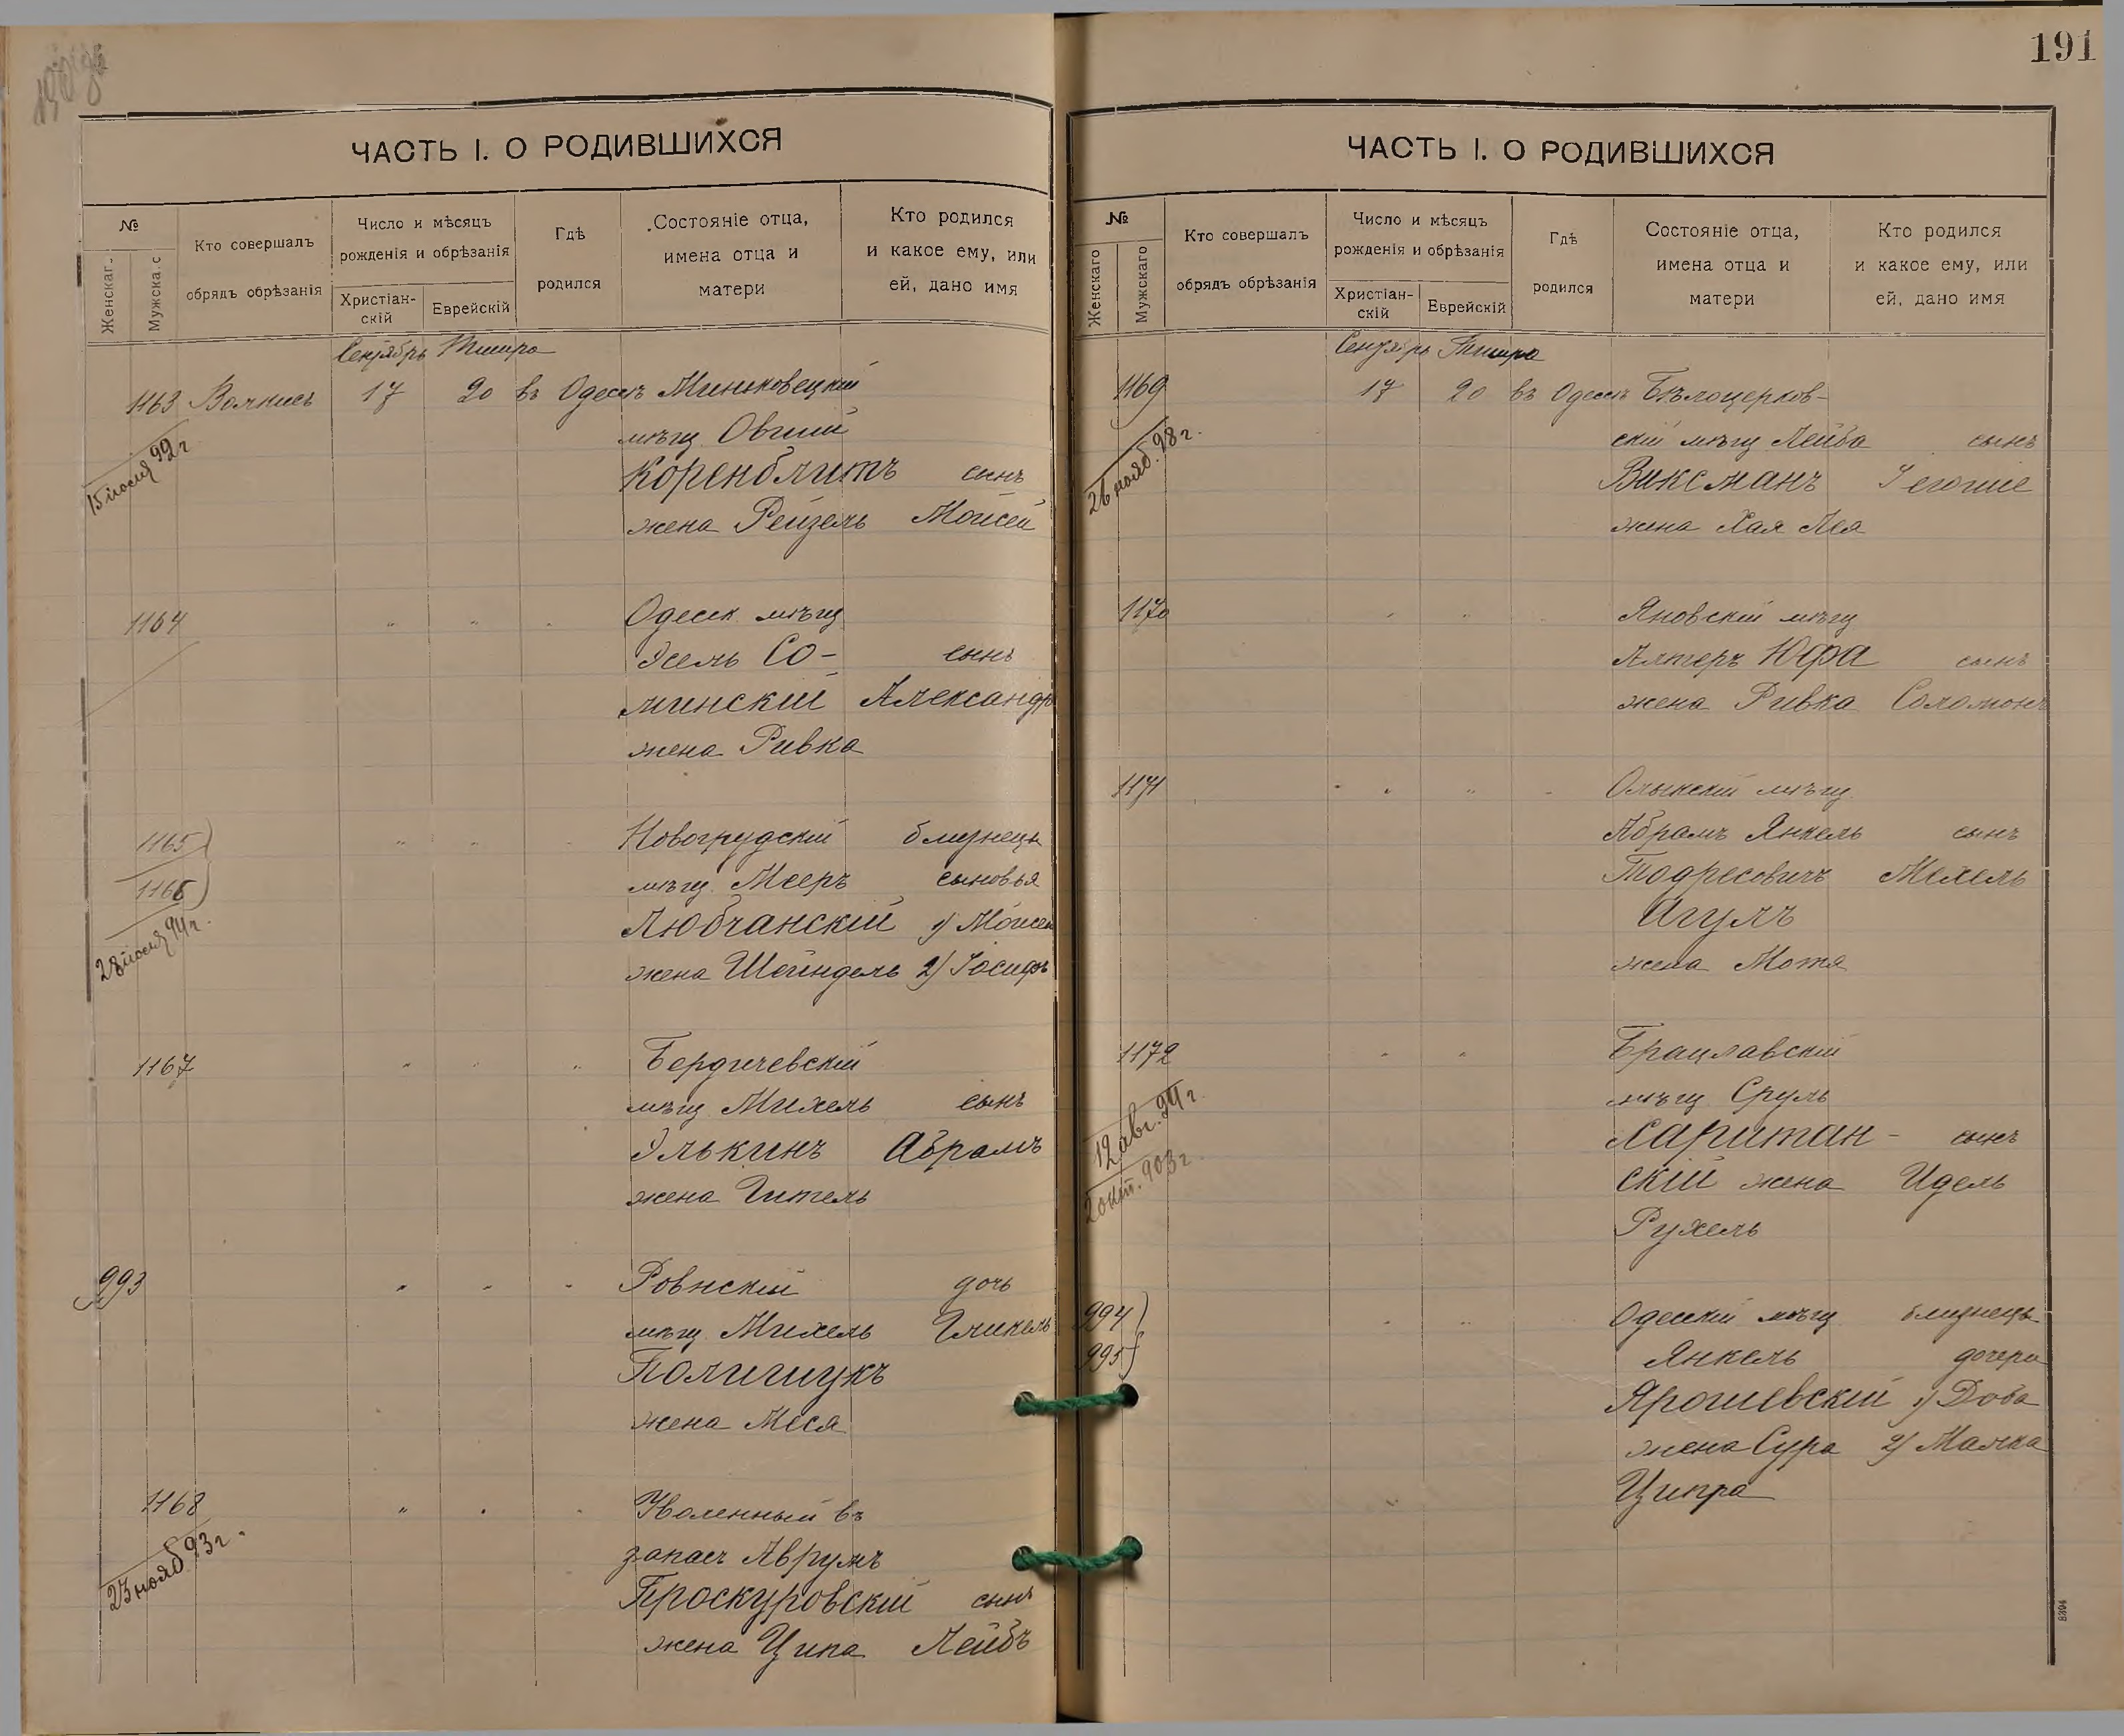 191
ЧАСТЬ I. О РОДИВШИХСЯ
№
Женскаг.
Мужска.с
Кто совершалъ
обрядъ обрѣзанія
Число и мѣсяцъ
рожденія и обрѣзанія
Христіан-
скій
Еврейскій
Гдѣ
родился
Состояніе отца,
имена отца и
матери
Кто родился
и какое ему, или
ей, дано имя
Сентябрь Тишра
1163 17 20 въ Одессѣ Миньковецкій
15 іюля 99 г
мѣщ. Овшій
Коренблитъ сынъ
жена Рейзель Мойсей
1164 " " " Одесск. мѣщ
Эсель Со- сынъ
минскій Александръ
жена Ривка
1165 " " " Новогрудскій близнецы
1166 мѣщ. Мееръ сыновья
28 іюля 94 г.
Любчанскій 1) Мойсей
жена Шейндель 2) Іосифъ
1167 " " " Бердичевскій
мѣщ. Михель сынъ
Элькинъ Абрамъ
жена Гитель
993 " " " Ровнскій дочь
мѣщ. Михель Гликель
Полищукъ
жена Меся
1168 " " " Уволенный въ
23 нояб 93 г.
запасъ Аврумъ
Проскуровскій сынъ
жена Ципа Лейбъ
ЧАСТЬ I. О РОДИВШИХСЯ
№
Женскаго
Мужскаго
Кто совершалъ
обрядъ обрѣзанія
Число и мѣсяцъ
рожденія и обрѣзанія
Христіан-
скій
Еврейскій
Гдѣ
родился
Состояніе отца,
имена отца и
матери
Кто родился
и какое ему, или
ей, дано имя
Сентябрь Тишра
1169 17 20 въ Одессѣ Бѣлоцерков-
26 нояб. 98 г.
скій мѣщ Лейба сынъ
Виксманъ
жена Хая Лея
1170 " " Яновскій мѣщ
Алтеръ Юфа сынъ
жена Ривка Соломонъ
1171 " " " Олыкскій мѣщ.
Абрамъ Янкель сынъ
Тодресовичъ Мехель
Агулъ
жена Мотя
1172 " " Брацлавскій
12 авг. 94 г.
2 окт. 903 г.
мѣщ Сруль
Харитан- сынъ
скій жена Идель
Рухель
994 " " Одесскій мѣщ близнецы
995 Янкель дочери
Ярошевскій 1) Доба
жена Сура 2) Малка
Ципра
8394